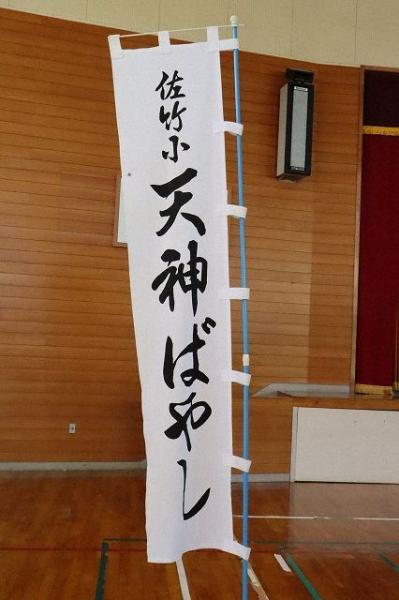 佐竹小天神ばやし